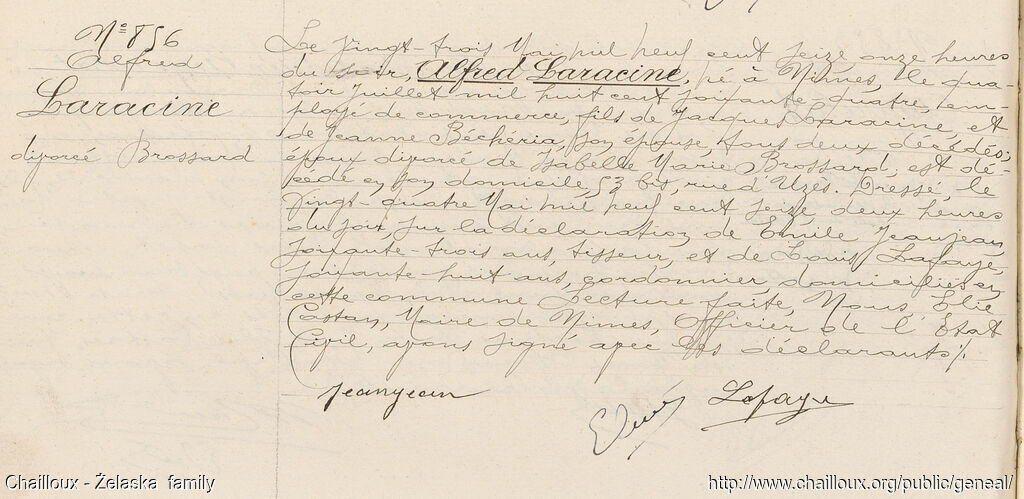 N° 856
Alfred
Laracine
divorcé Brossard
Le vingt-trois Mai mil neuf cent seize onze heures
du soir, Alfred Laracine, né à Nimes, le qua-
torz Juillet mil huit cent soixante-quatre, em-
ployé de commerce, fils de Jacques Laracine, et
de Jeanne Béchéria, son épouse, tous deux décédés;
époux divorcé de Isabelle Marie Brossard, est dé-
cédé en son domicile, 53 bis, rue d'Uzès. Dressé, le
vingt-quatre Mai mil neuf cent seize, deux heures
du soir, sur la déclaration de Emile Jeanjean,
soixante-trois ans, tisseur, et de Louis Lafaye,
soixante-huit ans, cordonnier, domiciliés en
cette commune Lecture faite, Nous, Elie
Castan, Maire de Nimes, Officier de l'Etat
Civil, avons signé avec les déclarants ./.
Jeanjean
Lafaye
Chailloux - Żelaska family
http://www.chailloux.org/public/geneal/